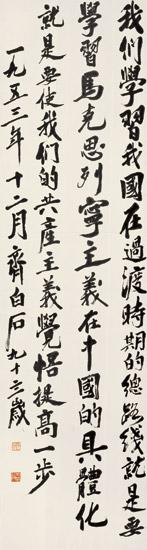 我们學習我國在過渡時期的總路綫就是要
學習馬克思列寧主義在中國的具體化
就是要使我们的共產主義覺悟提高一步
一九五三年十二月齊白石九十三歲